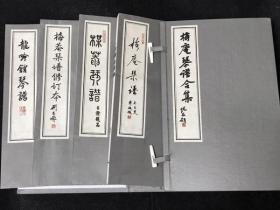 梅庵琴譜合集
梅庵琴譜
楳盦琴譜
梅菴琴譜修訂本
龍吟館琴譜